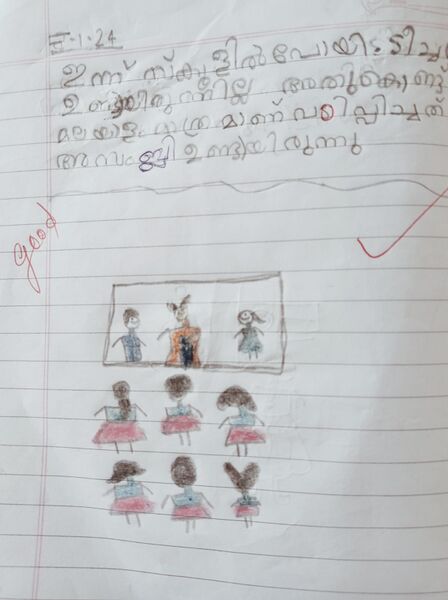 5-1-24
ഇന്ന് സ്കൂളിൽ പോയി. ടീച്ചർ
ഉണ്ടായിരുന്നില്ല അതുകൊണ്ട്
മലയാളം മാത്രമാണ് പഠിപ്പിച്ചത്
അസംബ്ലി ഉണ്ടായിരുന്നു
good